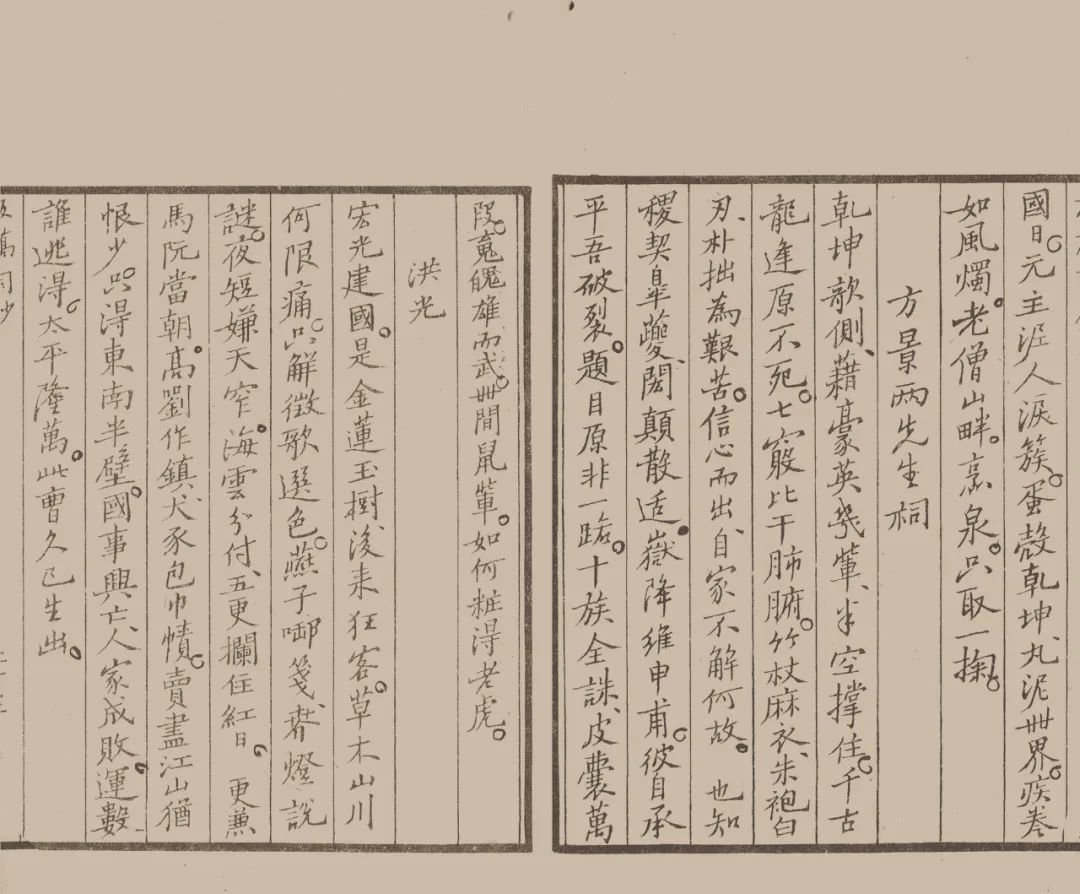 國日。元主泥人淚簇。蛋殼乾坤丸泥世界。疾卷
如風燭。老僧山畔。烹泉。只取一掬。
方景兩先生祠
乾坤欹側、藉豪英幾輩、半空撐住。千古
龍逢原不死。七竅比干肺腑。竹杖麻衣、朱袍白
刃、朴拙為艱苦。信心而出、自家不解何故。也知
稷契皐夔、閎顛散适。嶽降維申甫。彼自承
平吾破裂。題目原非一路。十族全誅、皮囊萬
段。䰟魄雄而武。世間鼠輩。如何粧得老虎。
洪光
宏光建國。是金蓮玉樹、後來狂客。草木山川
何限痛。只解徵歌選色。燕子啣箋、春燈說
謎。夜短嫌天窄。海雲分付、五更攔住紅日。更兼
馬阮當朝。高劉作鎮犬豕包巾幘。賣盡江山猶
恨少。只得東南半壁。國事興亡、人家成敗。運數
誰逃得。太平隆萬。此曹久已生出。